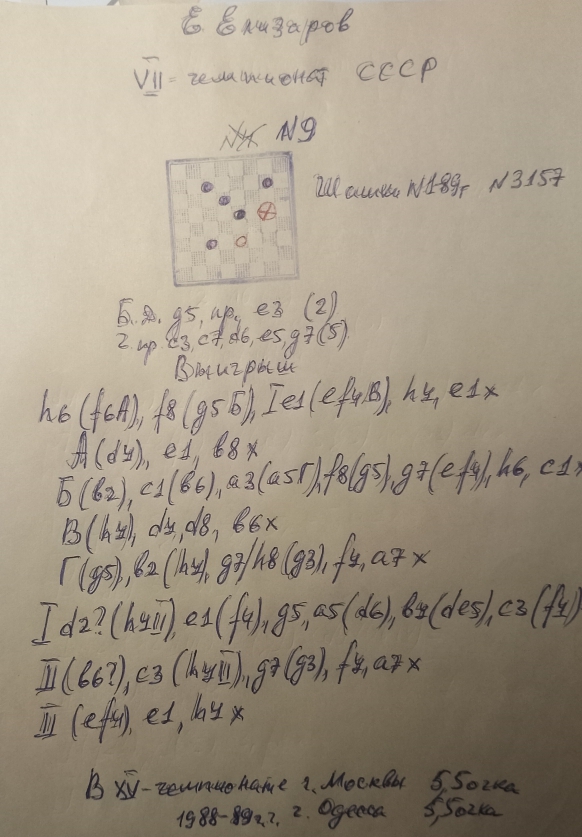 Е. Елизаров
VII = чемпионат СССР
N9
Шашки N 189г N3157
Б. Д. g5, пр. e3 (2)
Ч. пр. c3, c7, d6, e5, g7 (5)
Выигрыш
h6 (f6A), f8 (g5Б), I e1 (ef4B), h4, e1x
A (d4), e1, в8x
Б (в2), c1 (в6), a3 (a5Г), f8 (g5), g7 (ef4), h6, c1x
В (h4), d4, d8, в6x
Г (g5), в2 (h4), g7/h8 (g3), f4, a7x
I d2? (h4II), e1 (f4), g5, a5 (d6), в4 (de5), c3 (f4)
II (в6?), c3 (h4III), g7 (g3), f4, a7x
III (ef4), e1, h4x
В XV - чемпионате г. Москвы 5,5 очка
1988-89 г.г. г. Одесса 5,5 очка